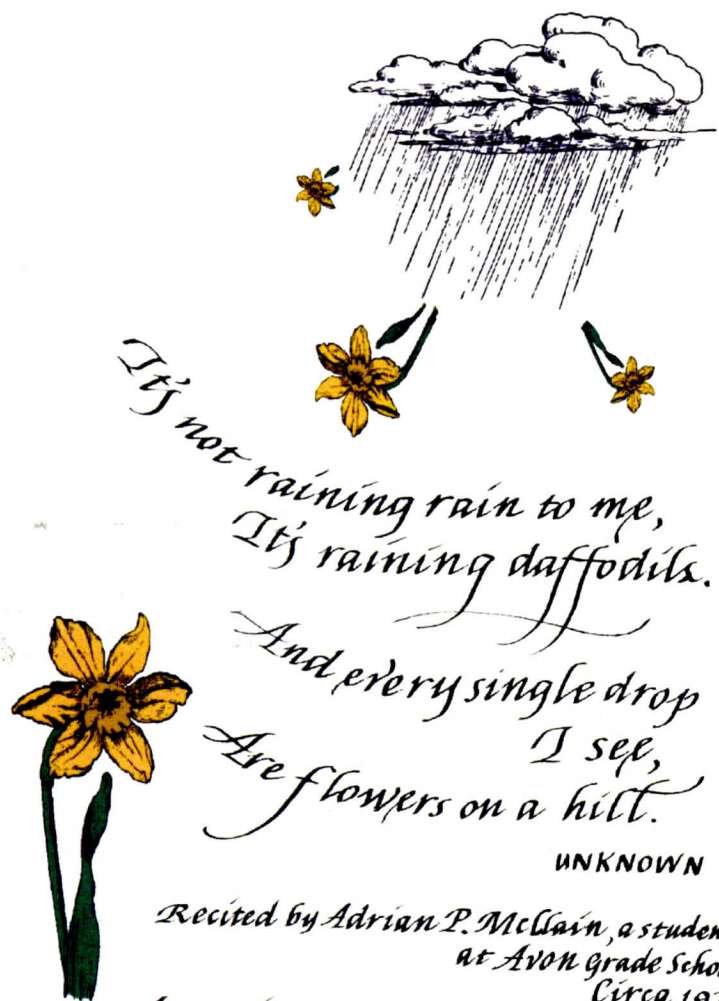 It's not raining rain to me,
It's raining daffodils.
And every single drop
I see,
Are flowers on a hill.
UNKNOWN
Recited by Adrian P. McClain, a
at Avon Grade
Circa